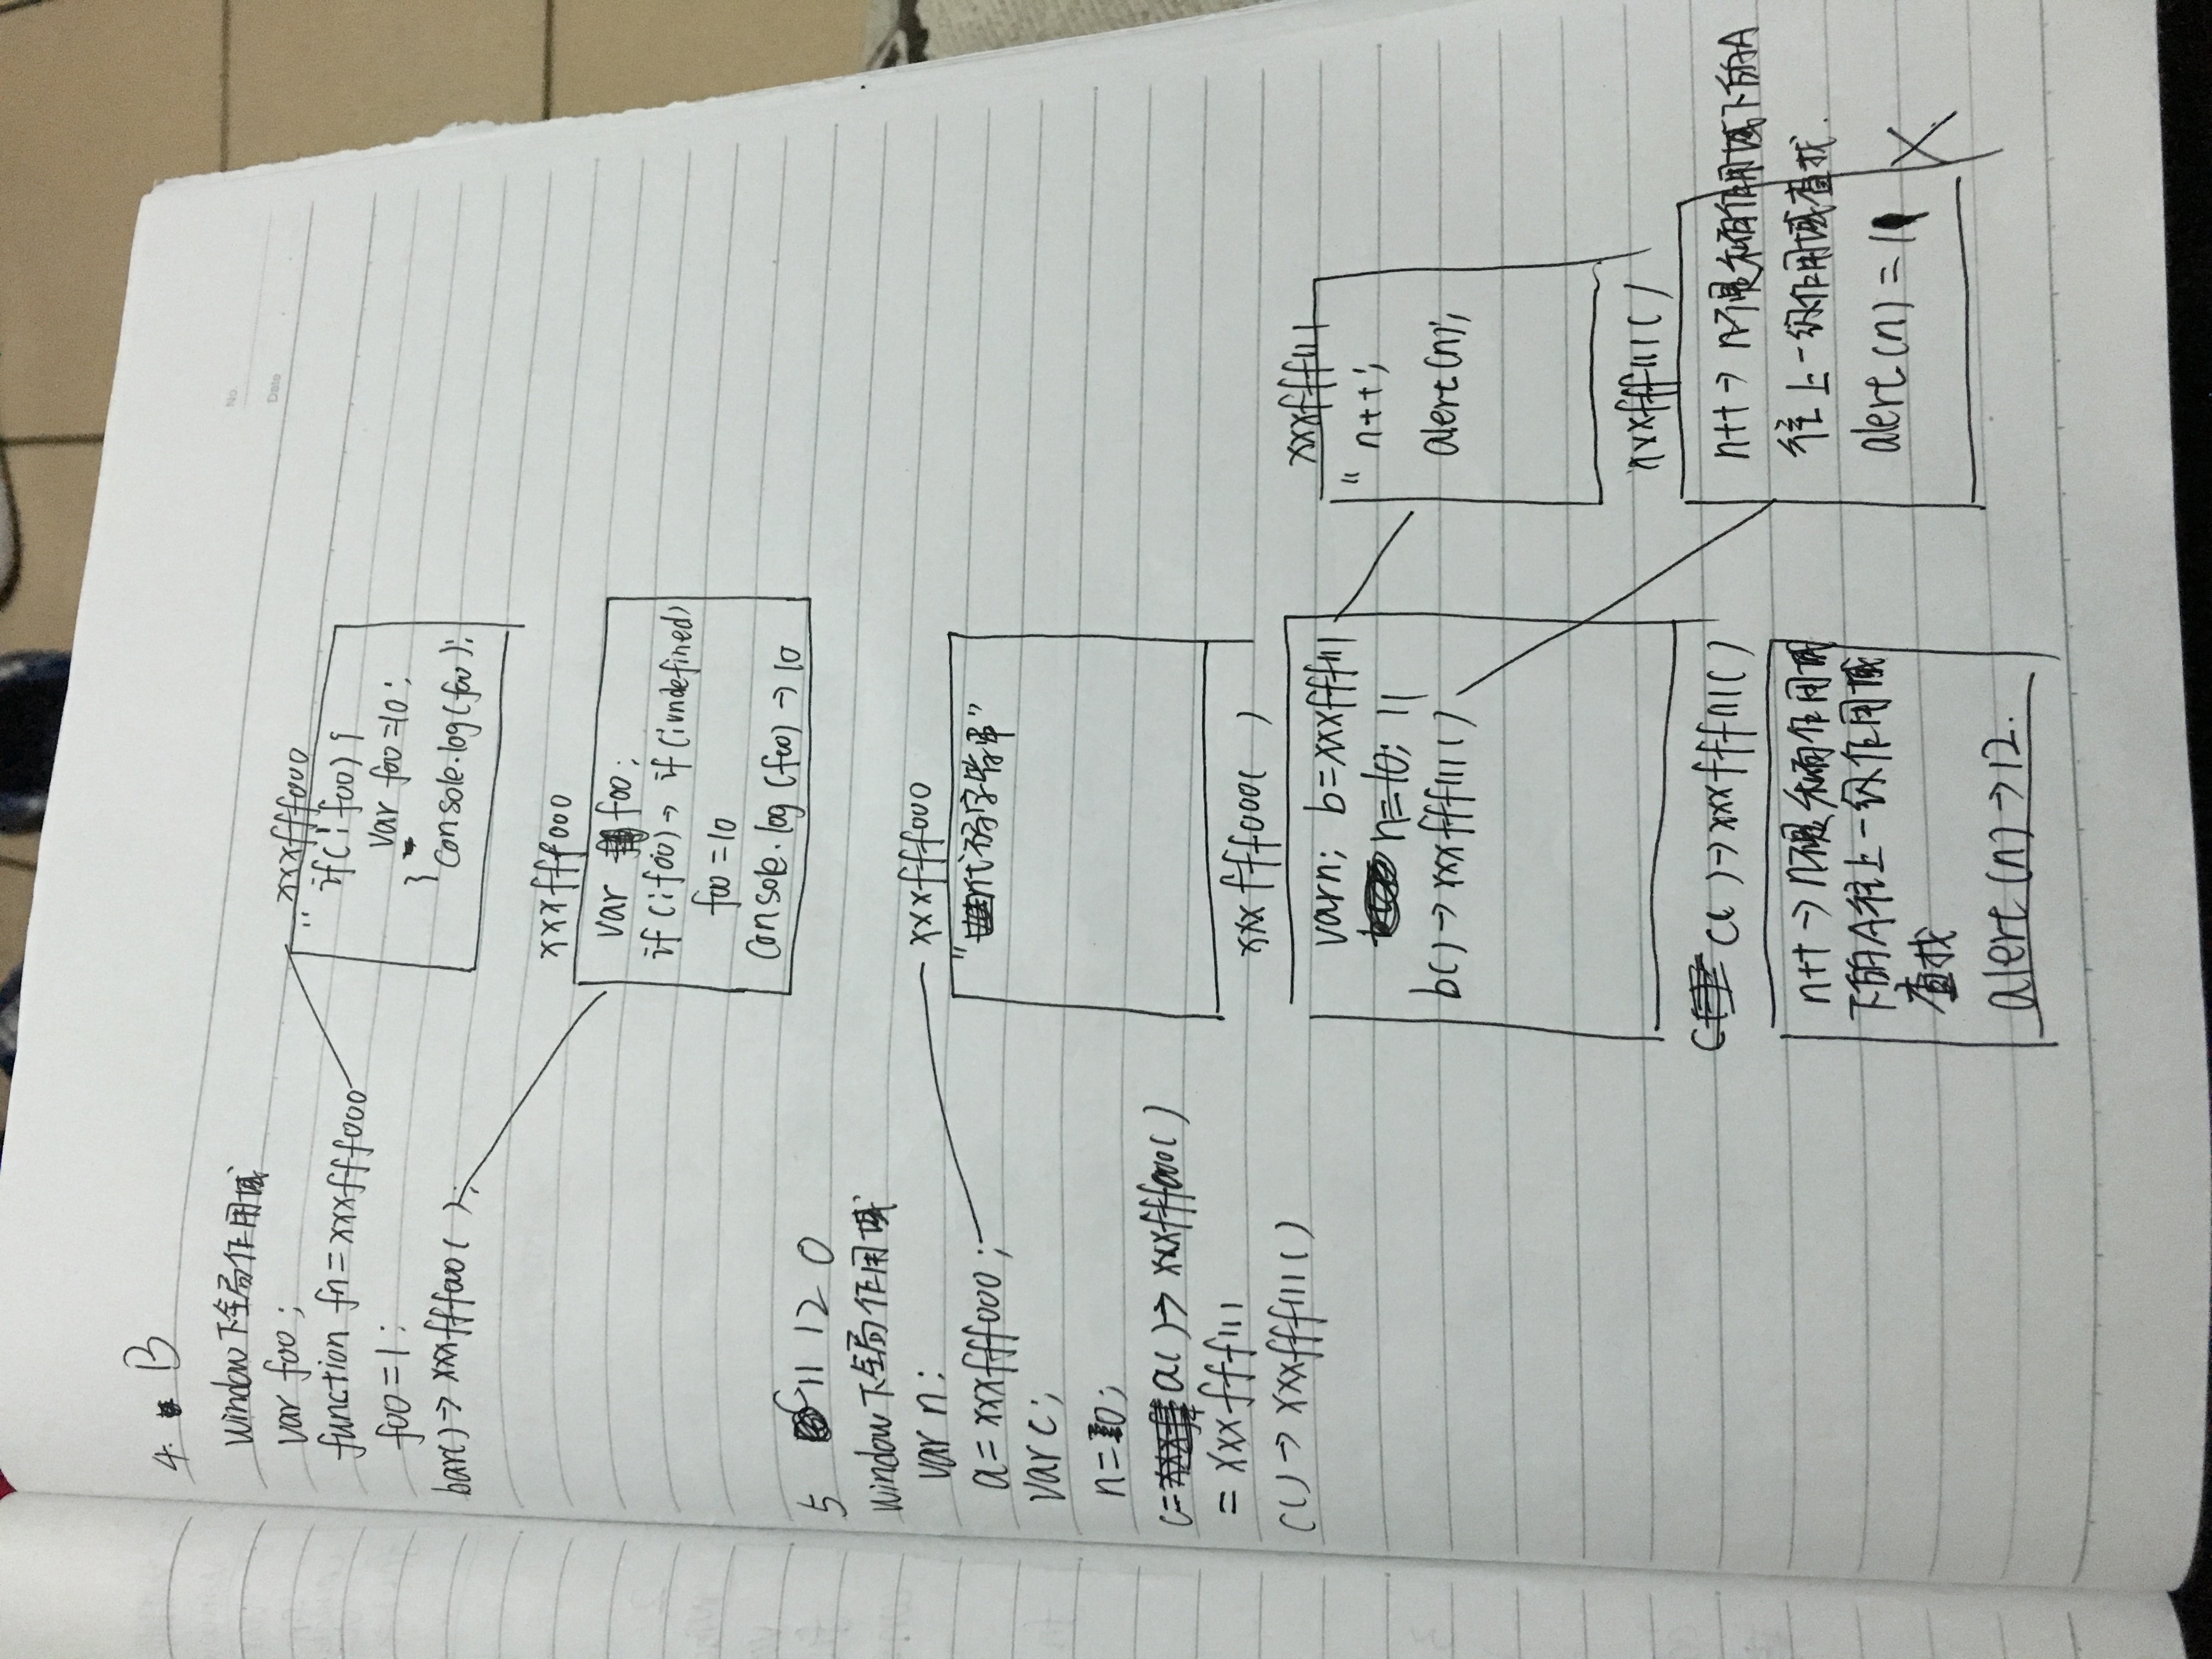 4. B
No.
Date
window下全局作用域
var foo;
function fn=xxxfff000
foo=1;
bar()→xxxfff000( );
xxxfff000
" if(!foo){
var foo=10;
}"
console.log(foo);
xxxfff000
var foo;
if(!foo)→ if(!undefined)
foo=10
console.log(foo)→10
5 C 11 12 0
window下全局作用域
var n;
a=xxxfff000;
var c;
n=0;
c= a()→xxxfff000()
=xxxfff111
c()→xxxfff111()
xxxfff000
"代码字符串"
xxxfff000( )
var n; b=xxxfff111
n=10; 11
b()→xxxfff111()
xxxfff111
" n++;
alert(n);
xxxfff111( )
n++→ n不是私有作用域下的A
往上一级作用域查找.
alert(n)=11
c( )→xxxfff111()
n++→n不是私有作用域
下的A往上一级作用域
查找
alert(n)→12.